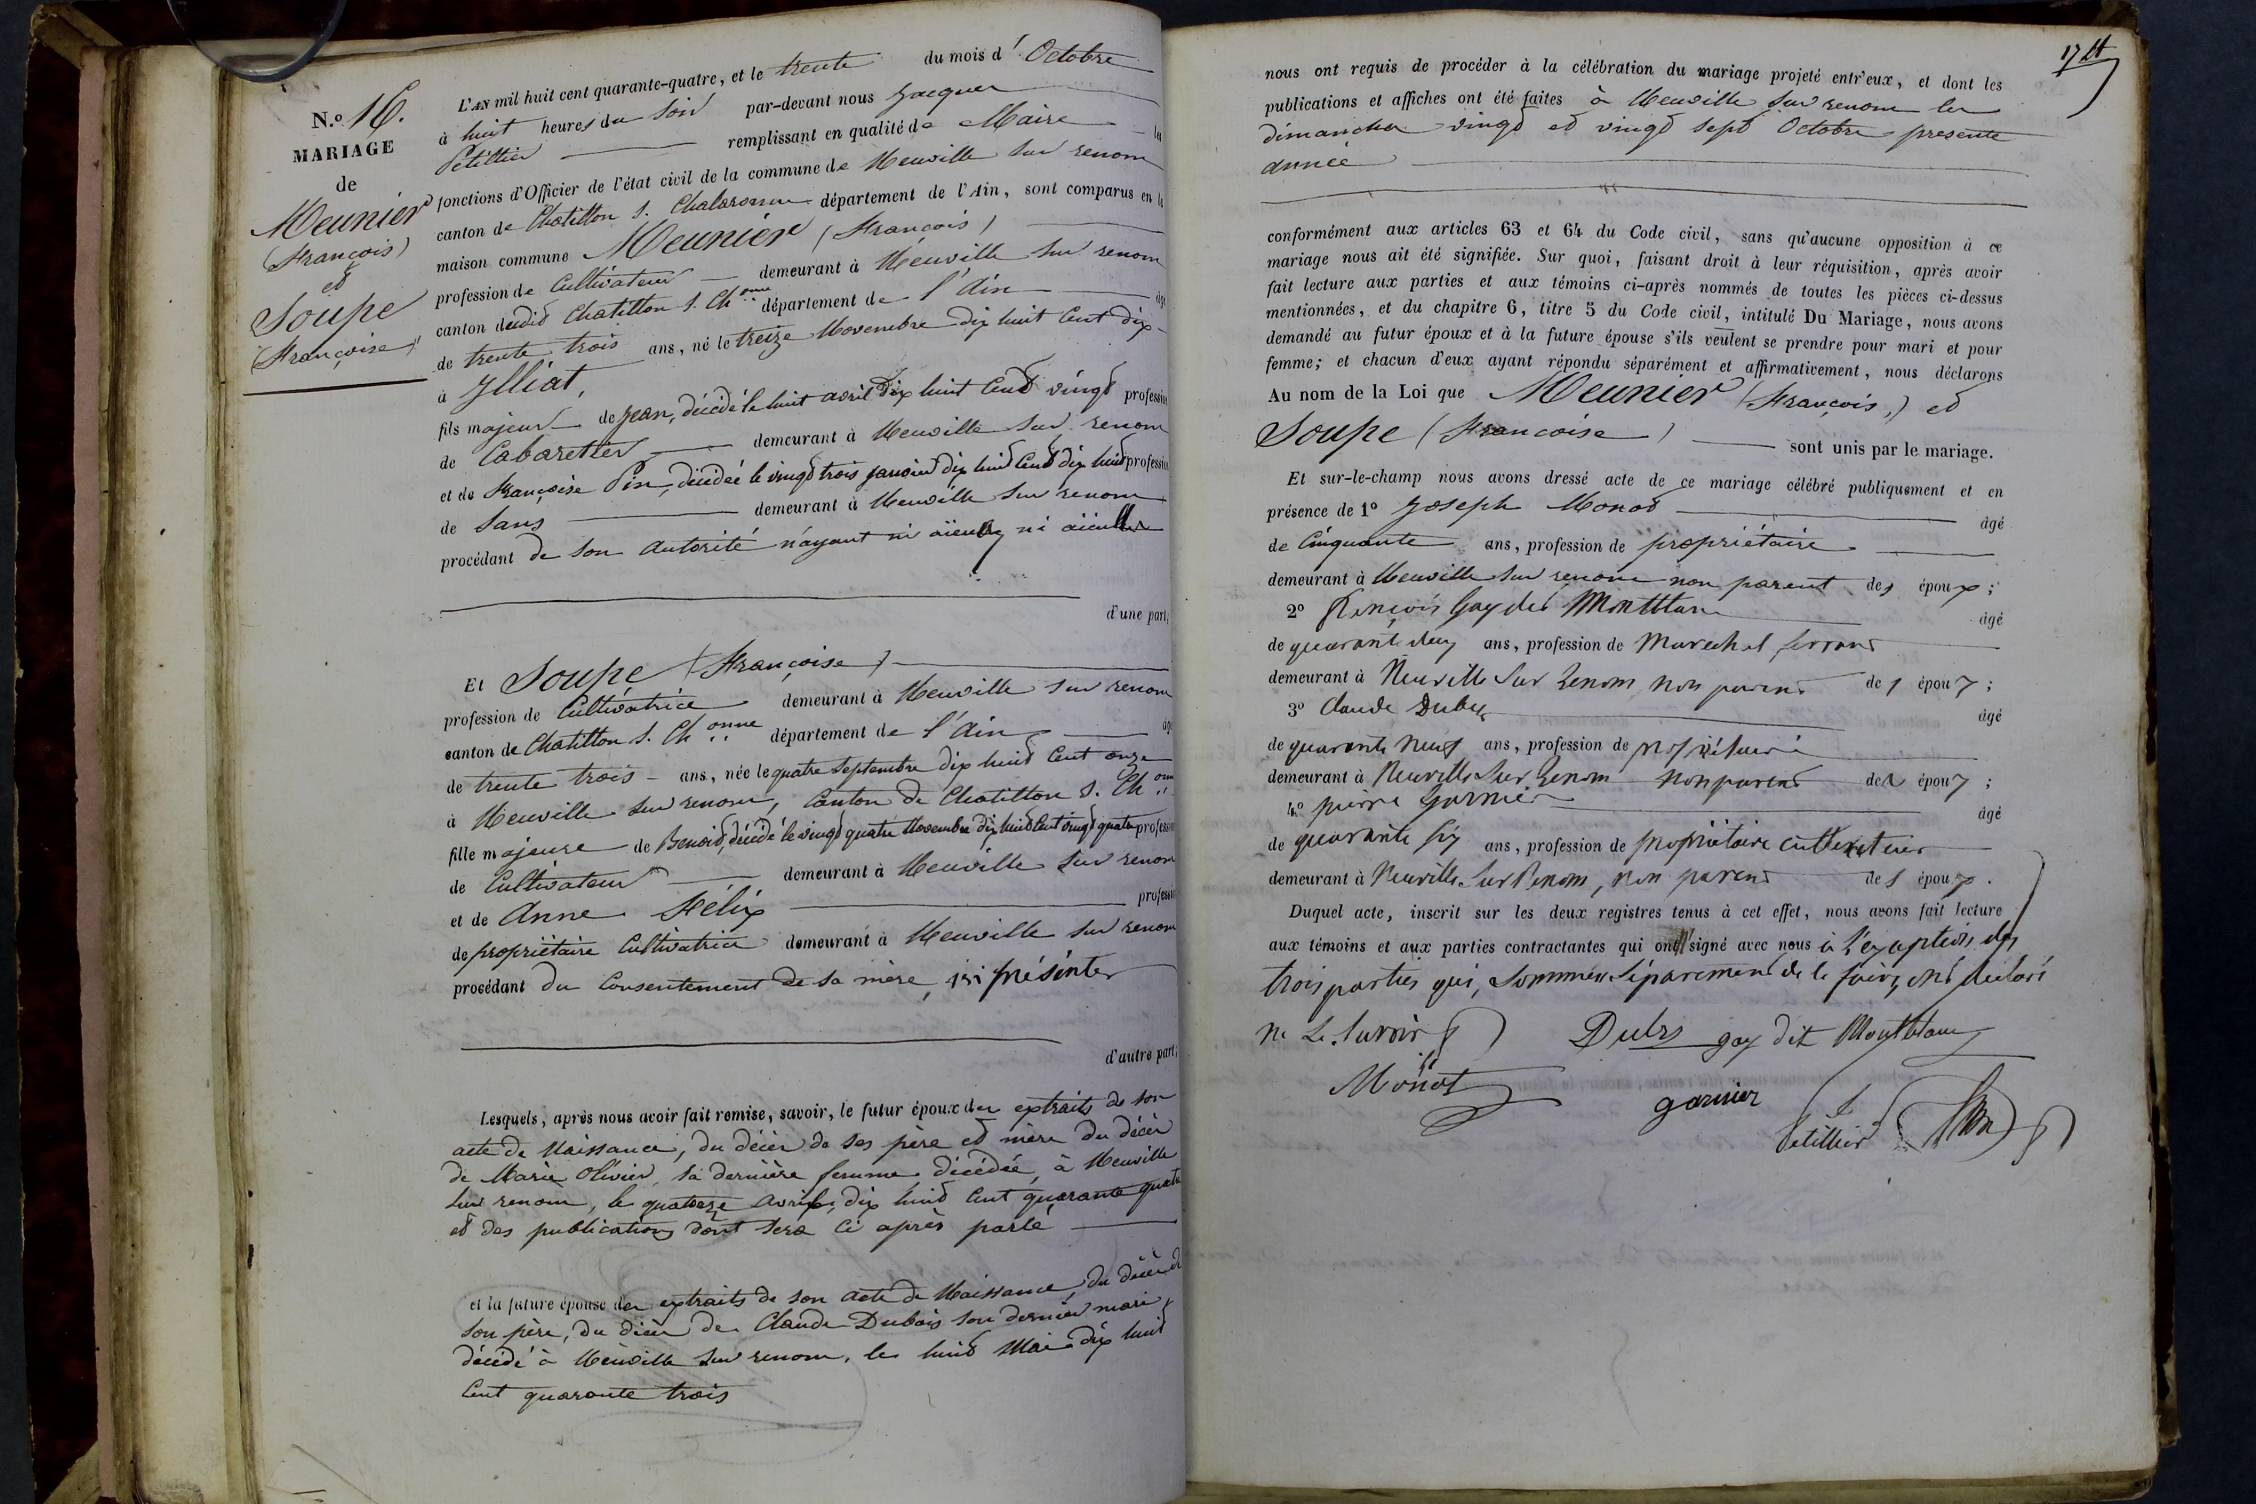 N.º 16.
MARIAGE
de
Meunier
(François)
et
Soupe
(Françoise)
L'AN mil huit cent quarante-quatre, et le trente du mois d'Octobre
à huit heures du soir par-devant nous Jacques
Petillier remplissant en qualité de Maire les
fonctions d'Officier de l'état civil de la commune de Neuville sur renom
canton de Chatillon s. Chalaronne département de l'Ain, sont comparus en la
maison commune Meunier (François)
profession de Cultivateur demeurant à Neuville sur renom
canton dudit Chatillon s. Chonne département de l'Ain âgé
de trente trois ans, né le treize Novembre dix huit Cent dix
à Illiat,
fils majeur de Jean, décédé le huit avril dix huit Cent vingt profession
de Cabaretier demeurant à Neuville sur renom
et de Françoise Pin, décédée le vingt trois janvier dix huit Cent dix huit profession
de Sans demeurant à Neuville sur renom
procédant de son autorité n'ayant ni aïeux ni aïeulles
d'une part;
Et Soupe (Françoise)
profession de Cultivatrice demeurant à Neuville sur renom
canton de Chatillon s. Chonne département de l'Ain âgé
de trente trois ans, née le quatre Septembre dix huit Cent onze
à Neuville sur renom, Canton de Chatillon s. Chonne
fille majeure de Benoit, décédé le vingt quatre Novembre dix huit Cent vingt quatre profession
de Cultivateur demeurant à Neuville sur renom
et de Anne Félix profession
de propriétaire Cultivatrice demeurant à Neuville sur renom
procédant du Consentement de sa mère, ici présente
d'autre part;
Lesquels, après nous avoir fait remise, savoir, le futur époux des extraits de son
acte de Naissance, du décès de ses père et mère du décès
de Marie Olivier, sa dernière femme décédée, à Neuville
sur renom, le quatorze avril, dix huit Cent quarante quatre
et des publications dont sera ci après parlé
et la future épouse des extraits de son acte de Naissance, du décès de
son père, du décès de Claude Dubois son dernier mari,
décédé à Neuville sur renom, le huit Mai dix huit
Cent quarante trois
17
nous ont requis de procéder à la célébration du mariage projeté entr'eux, et dont les
publications et affiches ont été faites à Neuville sur renom les
dimanches vingt et vingt sept Octobre présente
année
conformément aux articles 63 et 64 du Code civil, sans qu'aucune opposition à ce
mariage nous ait été signifiée. Sur quoi, faisant droit à leur réquisition, après avoir
fait lecture aux parties et aux témoins ci-après nommés de toutes les pièces ci-dessus
mentionnées, et du chapitre 6, titre 5 du Code civil, intitulé Du Mariage, nous avons
demandé au futur époux et à la future épouse s'ils veulent se prendre pour mari et pour
femme; et chacun d'eux ayant répondu séparément et affirmativement, nous déclarons
Au nom de la Loi que Meunier (François,) et
Soupe (Francoise) sont unis par le mariage.
Et sur-le-champ nous avons dressé acte de ce mariage célébré publiquement et en
présence de 1º Joseph Monot âgé
de Cinquante ans, profession de propriétaire
demeurant à Neuville sur renom non parent des époux;
2º François Gay dit Montblanc âgé
de quarante deux ans, profession de Marechal ferrant
demeurant à Neuville Sur Renom, non parent des époux;
3º Claude Duby âgé
de quarante neuf ans, profession de propriétaire
demeurant à Neuville Sur Renom non parent des époux;
4º pierre Garnier âgé
de quarante six ans, profession de propriétaire cultivateur
demeurant à Neuville Sur Renom, non parent des époux.
Duquel acte, inscrit sur les deux registres tenus à cet effet, nous avons fait lecture
aux témoins et aux parties contractantes qui ont signé avec nous à l'exception des
trois parties qui, sommées séparément de le faire, ont déclaré
ne le savoir
Duby gay dit Montblanc
Monot
garnier
Petillier